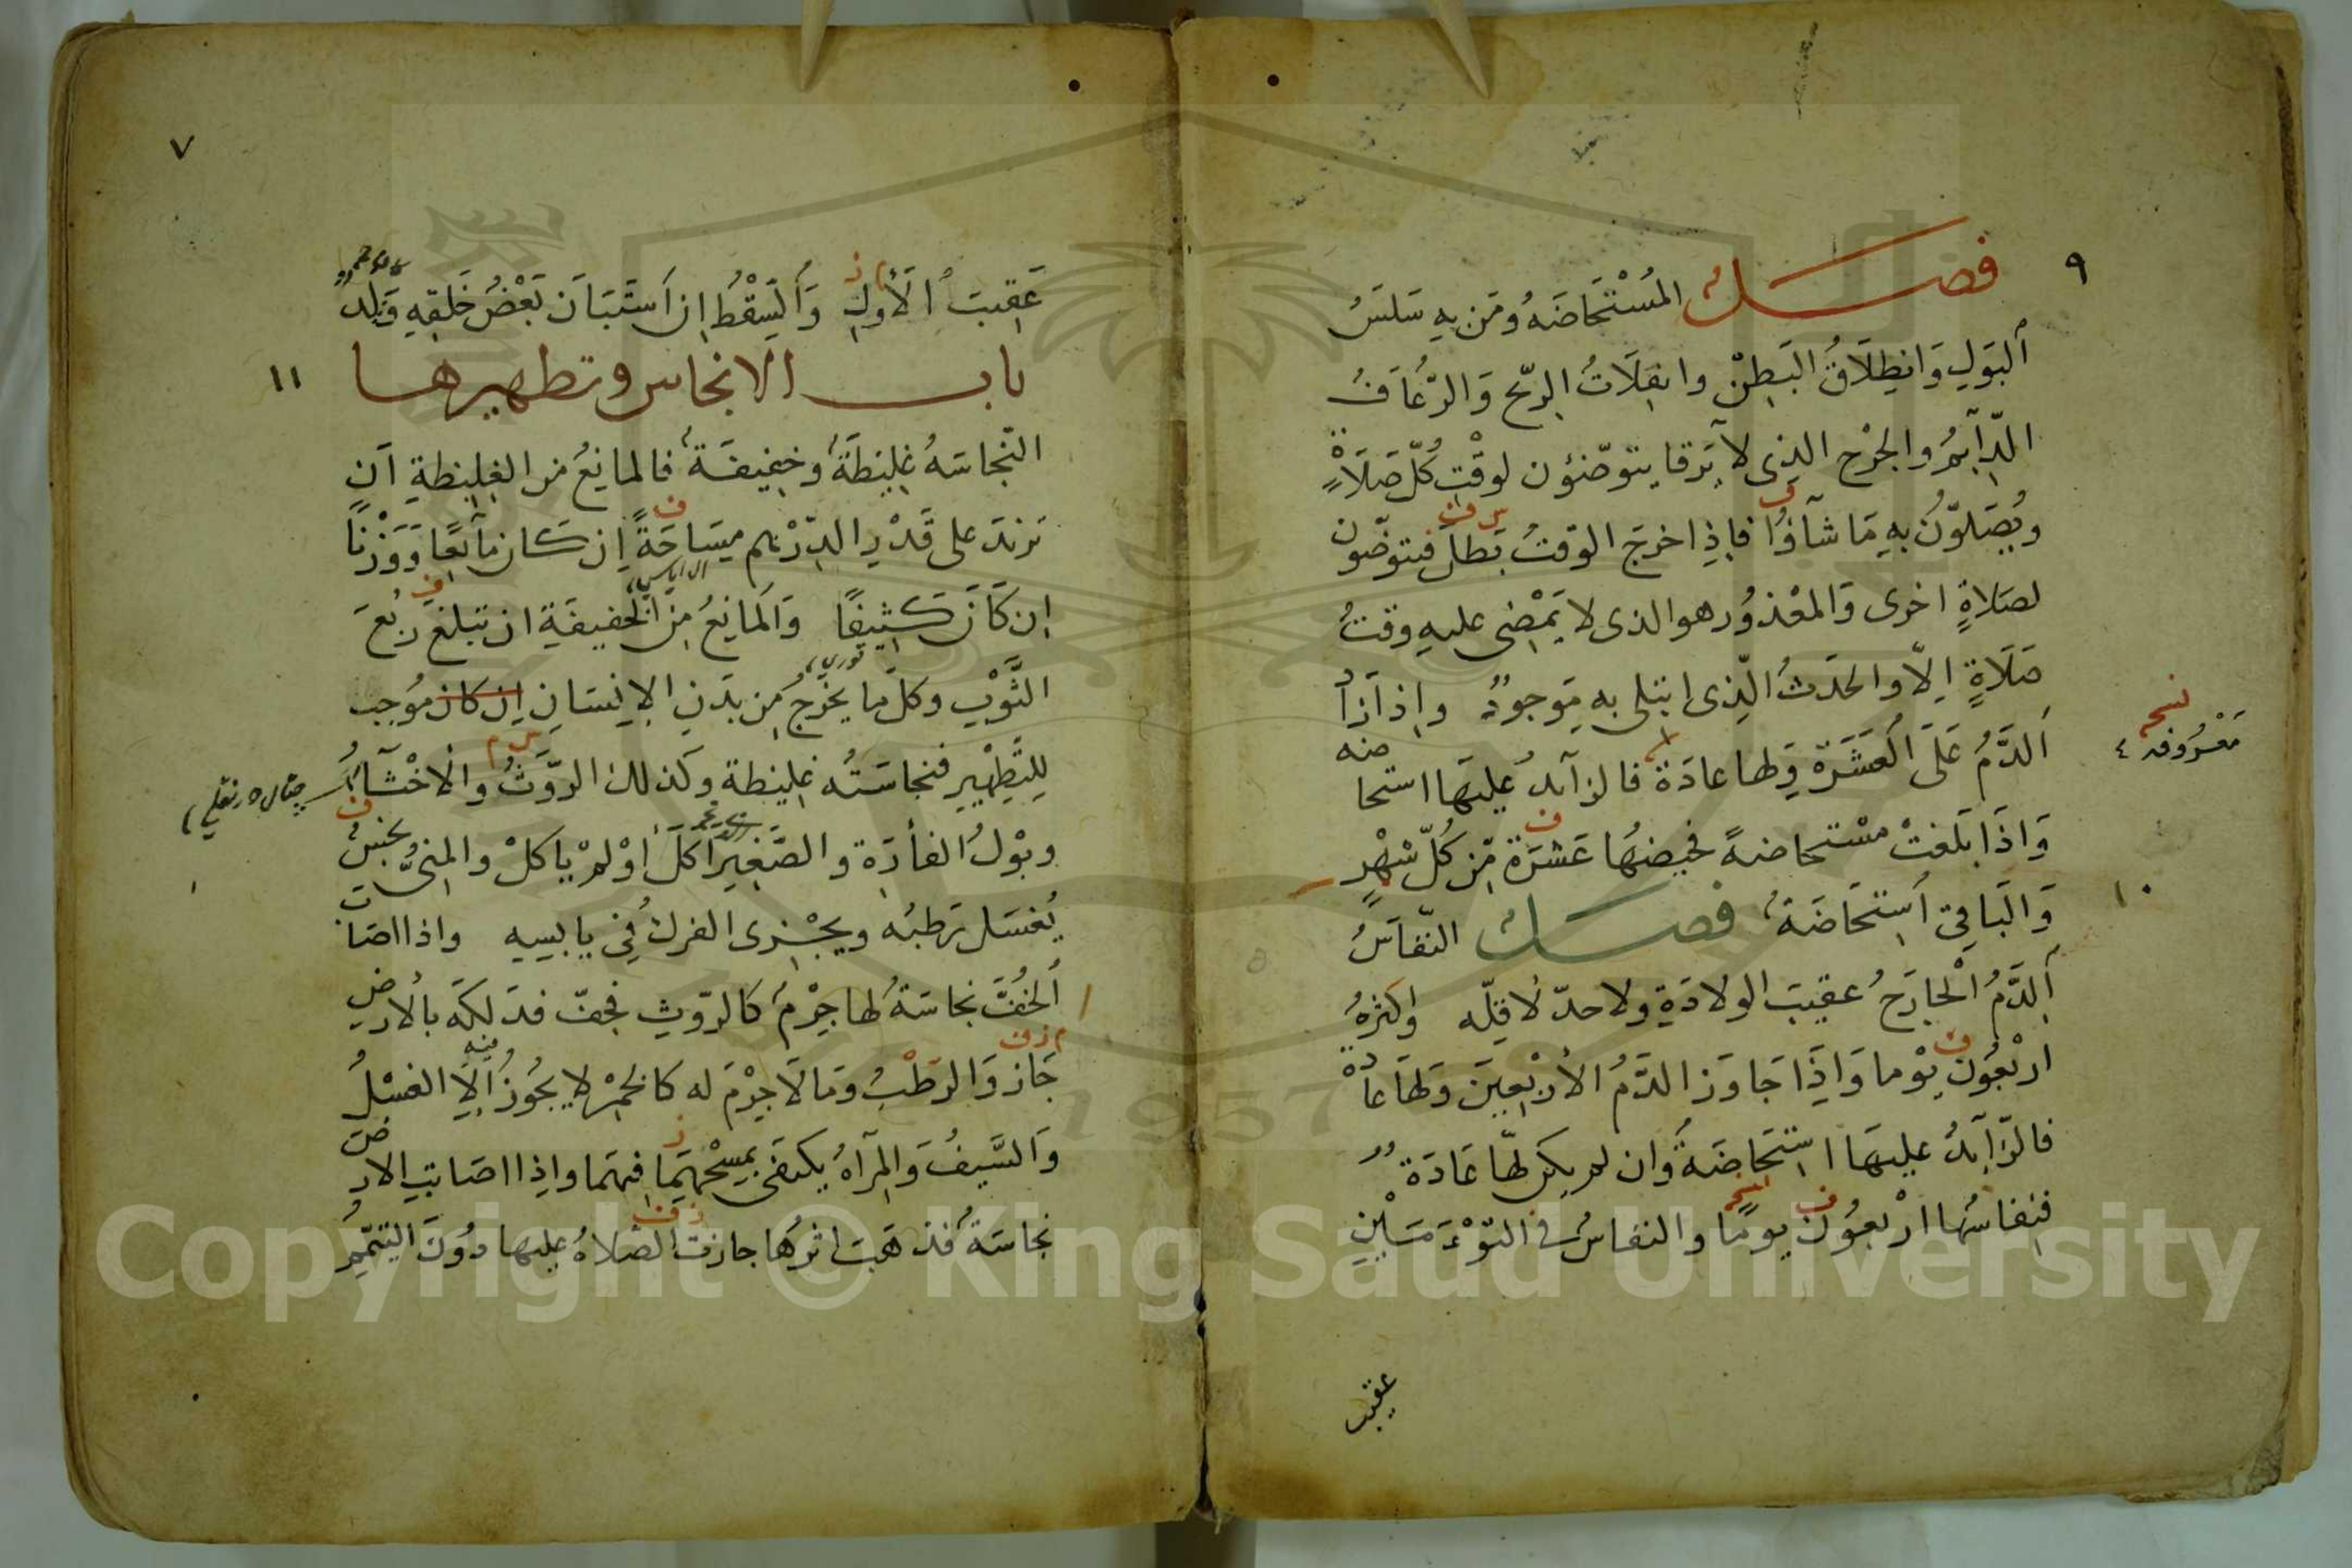 ٩
فصل المُسْتَحَاضَهُ ومَن بِهِ سَلَسُ
اَلبَوَلِ وَانطِلَاقُ البَطِنْ وانفِلَاتُ الرّيح وَالرّعُاَفُ
الدّاَئِمُ والجُرْح الذِى لا يَرقا يتوضّئون لوقْتِ كُلّ صَلَاةٍ
ويُصَلوّنُ بهِ مَا شآؤُا فاِذِا خرجَ الوَقتُ بَطلَ فيتوضّون
لصَلاةٍ اخرى وَالمعْذوُر هو الذى لا يَمْضِى عليهِ وقتُ
صَلَاةٍ اِلّا والحدَثُ الّذِى ابتلى به مَوجودٌ واِذا زادُ
منه
الدَّمُ عَلَى العَشَرَة وَلها عادَة فالزآئدُ عليهَا استحا
نسخه
مَعْرُوفه ٤
وَاِذَا بَلَغتْ مسْتحاضهً فحيضهُا عَشرَة مّن كُلّ شهْرٍ
١٠
وَالبَاقِى اَستِحَاضَهٌ فصل النّفاَسُ
اَلدَّمُ الخارجُ عقيبَ الولادَةِ ولا حدّ لاقلّه واكثرهُ
اربْعُوَن يوْما وَاِذَا جَاوَز الدَّمُ الأربْعينَ وَلهَا عاْدة
فالزّائدُ عليهَا استحَاضَهٌ وَان لم يكن لهّا عَادَةٌ
فنفاسُها ارْبعوُن يومًا والنفاسُ فى التّوْءَمَيْنِ
عقيب
٧
عَقِيبَ الَأولِ وَاَلسِّقْطُ اِن اَستَبَاَن بَعْضُ خَلقِهِ وَلدٌ
١١
باب الانجاس وتطهيرها
النّجاسَهُ غلِيظَةٌ وخفِيفَةٌ فالمانِعُ من الغلِيظةِ اَن
تزيدَ على قَدْرِ الدّرْهم مِسَاحَةً اِن كان مآئعًا وَوَزْنًا
اِن كَاَنَ كثِيفًا وَاَلمانِعُ مِن الخفيفَةِ ان تبلغَ ربُعَ
الثَّوْبِ وكلّ ما يخرُجُ مِن بدَنِ الإِنسَانِ اِن كان مُوجب
لِلتّطِهْيرِ فنجاسَتُه غليظة وكذلك الروَّثُ والاخْثَآءُ
وبوْلُ الفأرَة والصّغيِر اكَلَ اوْ لمْ ياكلْ والمنىُّ نجسٌ
يُغسَل رَطبُه ويجْزِى الفركُ فِي يابسِهِ واذا اصَابَت
اَلخُفَّ نجاسَةٌ لها جِرْمٌ كالرّوثِ فجفّ فدَلكَهَ بالأرض
جَازَ وَالرَطْبُ وَمَا لَا جِرْمَ له كالخمْرِ لا يجُوزُ اِلّا الغَسْلُ
وَالسَّيفُ وَالمرآهُ يكتفَى بمسْحِهِمَا فيهمَا واِذا اصَابتِ الارض
نجاسَةٌ فذهَبَ اثرهُا جازت الصّلاهُ عليها دوُنَ التيَّمّمُ
Copyright © King Saud University
1957